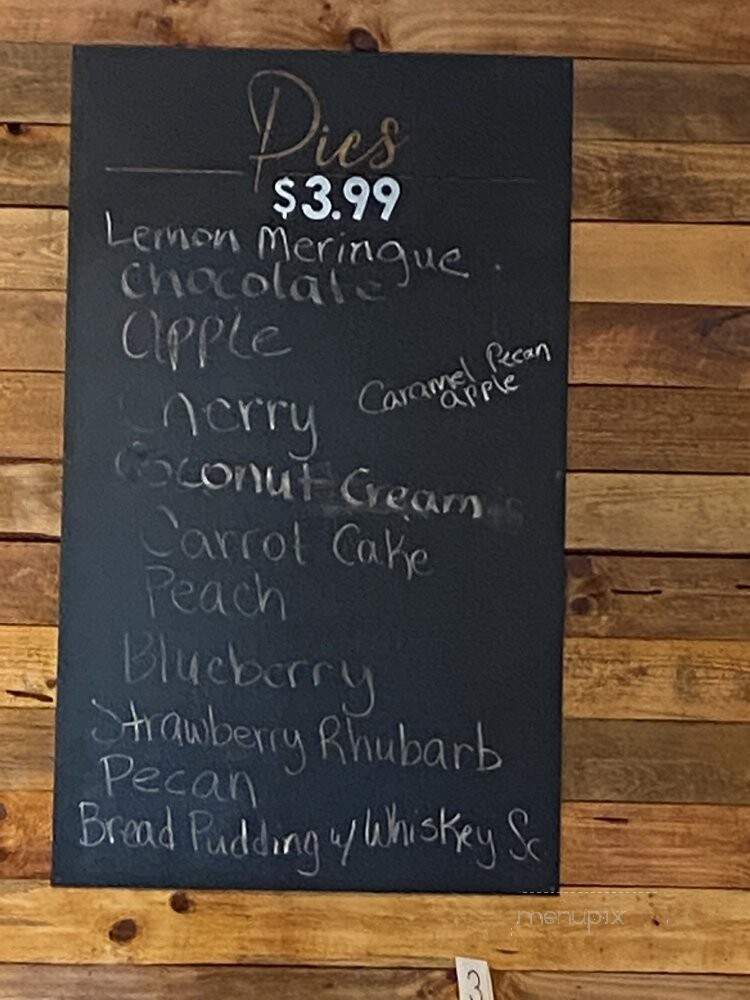 Pies
$3.99
Lemon Meringue
Chocolate
Apple
Cherry
Caramel Pecan
apple
Coconut Cream
Carrot Cake
Peach
Blueberry
Strawberry Rhubarb
Pecan
Bread Pudding w/ Whiskey Sc
menupix
3